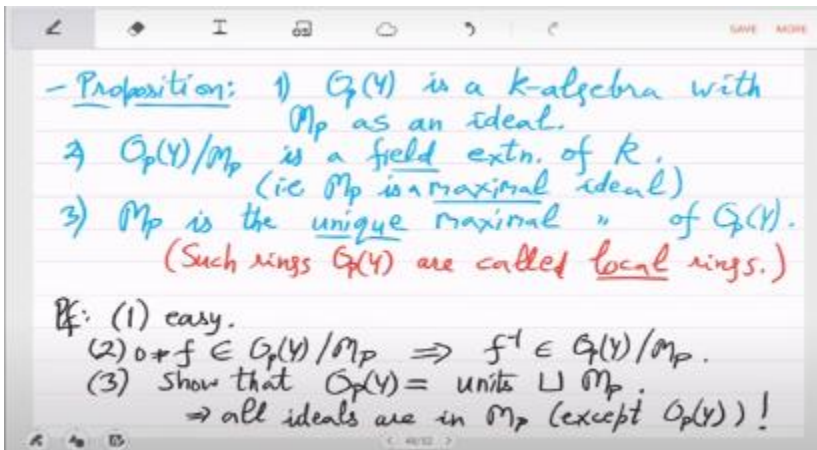 SAVE MORE
- Proposition: 1) O_P(Y) is a k-algebra with
m_P as an ideal.
2) O_P(Y)/m_P is a field extn. of k.
(ie m_P is a maximal ideal)
3) m_P is the unique maximal " of O_P(Y).
(Such rings O_P(Y) are called local rings.)
Pf: (1) easy.
(2) 0≠f ∈ O_P(Y)/m_P ⇒ f⁻¹ ∈ O_P(Y)/m_P.
(3) Show that O_P(Y) = units ⊔ m_P.
⇒ all ideals are in m_P (except O_P(Y))!